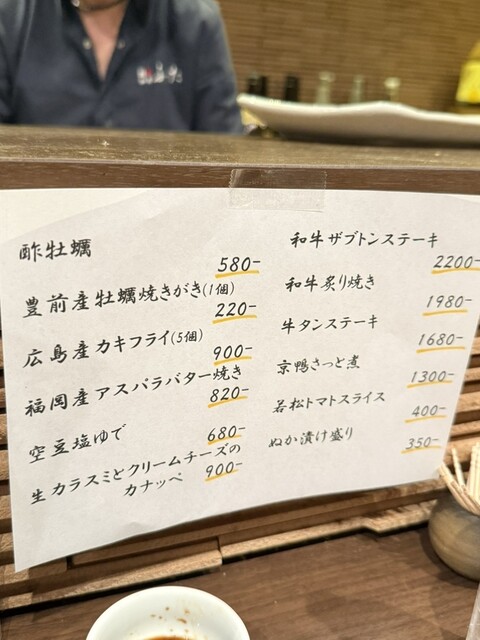 酢牡蠣
580-
豊前産牡蠣焼きがき(1個)
220-
広島産カキフライ(5個)
900-
福岡産アスパラバター焼き
820-
空豆塩ゆで
680-
生カラスミとクリームチーズの
カナッペ 900-
和牛ザブトンステーキ
2200-
和牛炙り焼き
1980-
牛タンステーキ
1680-
京鴨さっと煮
1300-
若松トマトスライス
400-
ぬか漬け盛り
350-